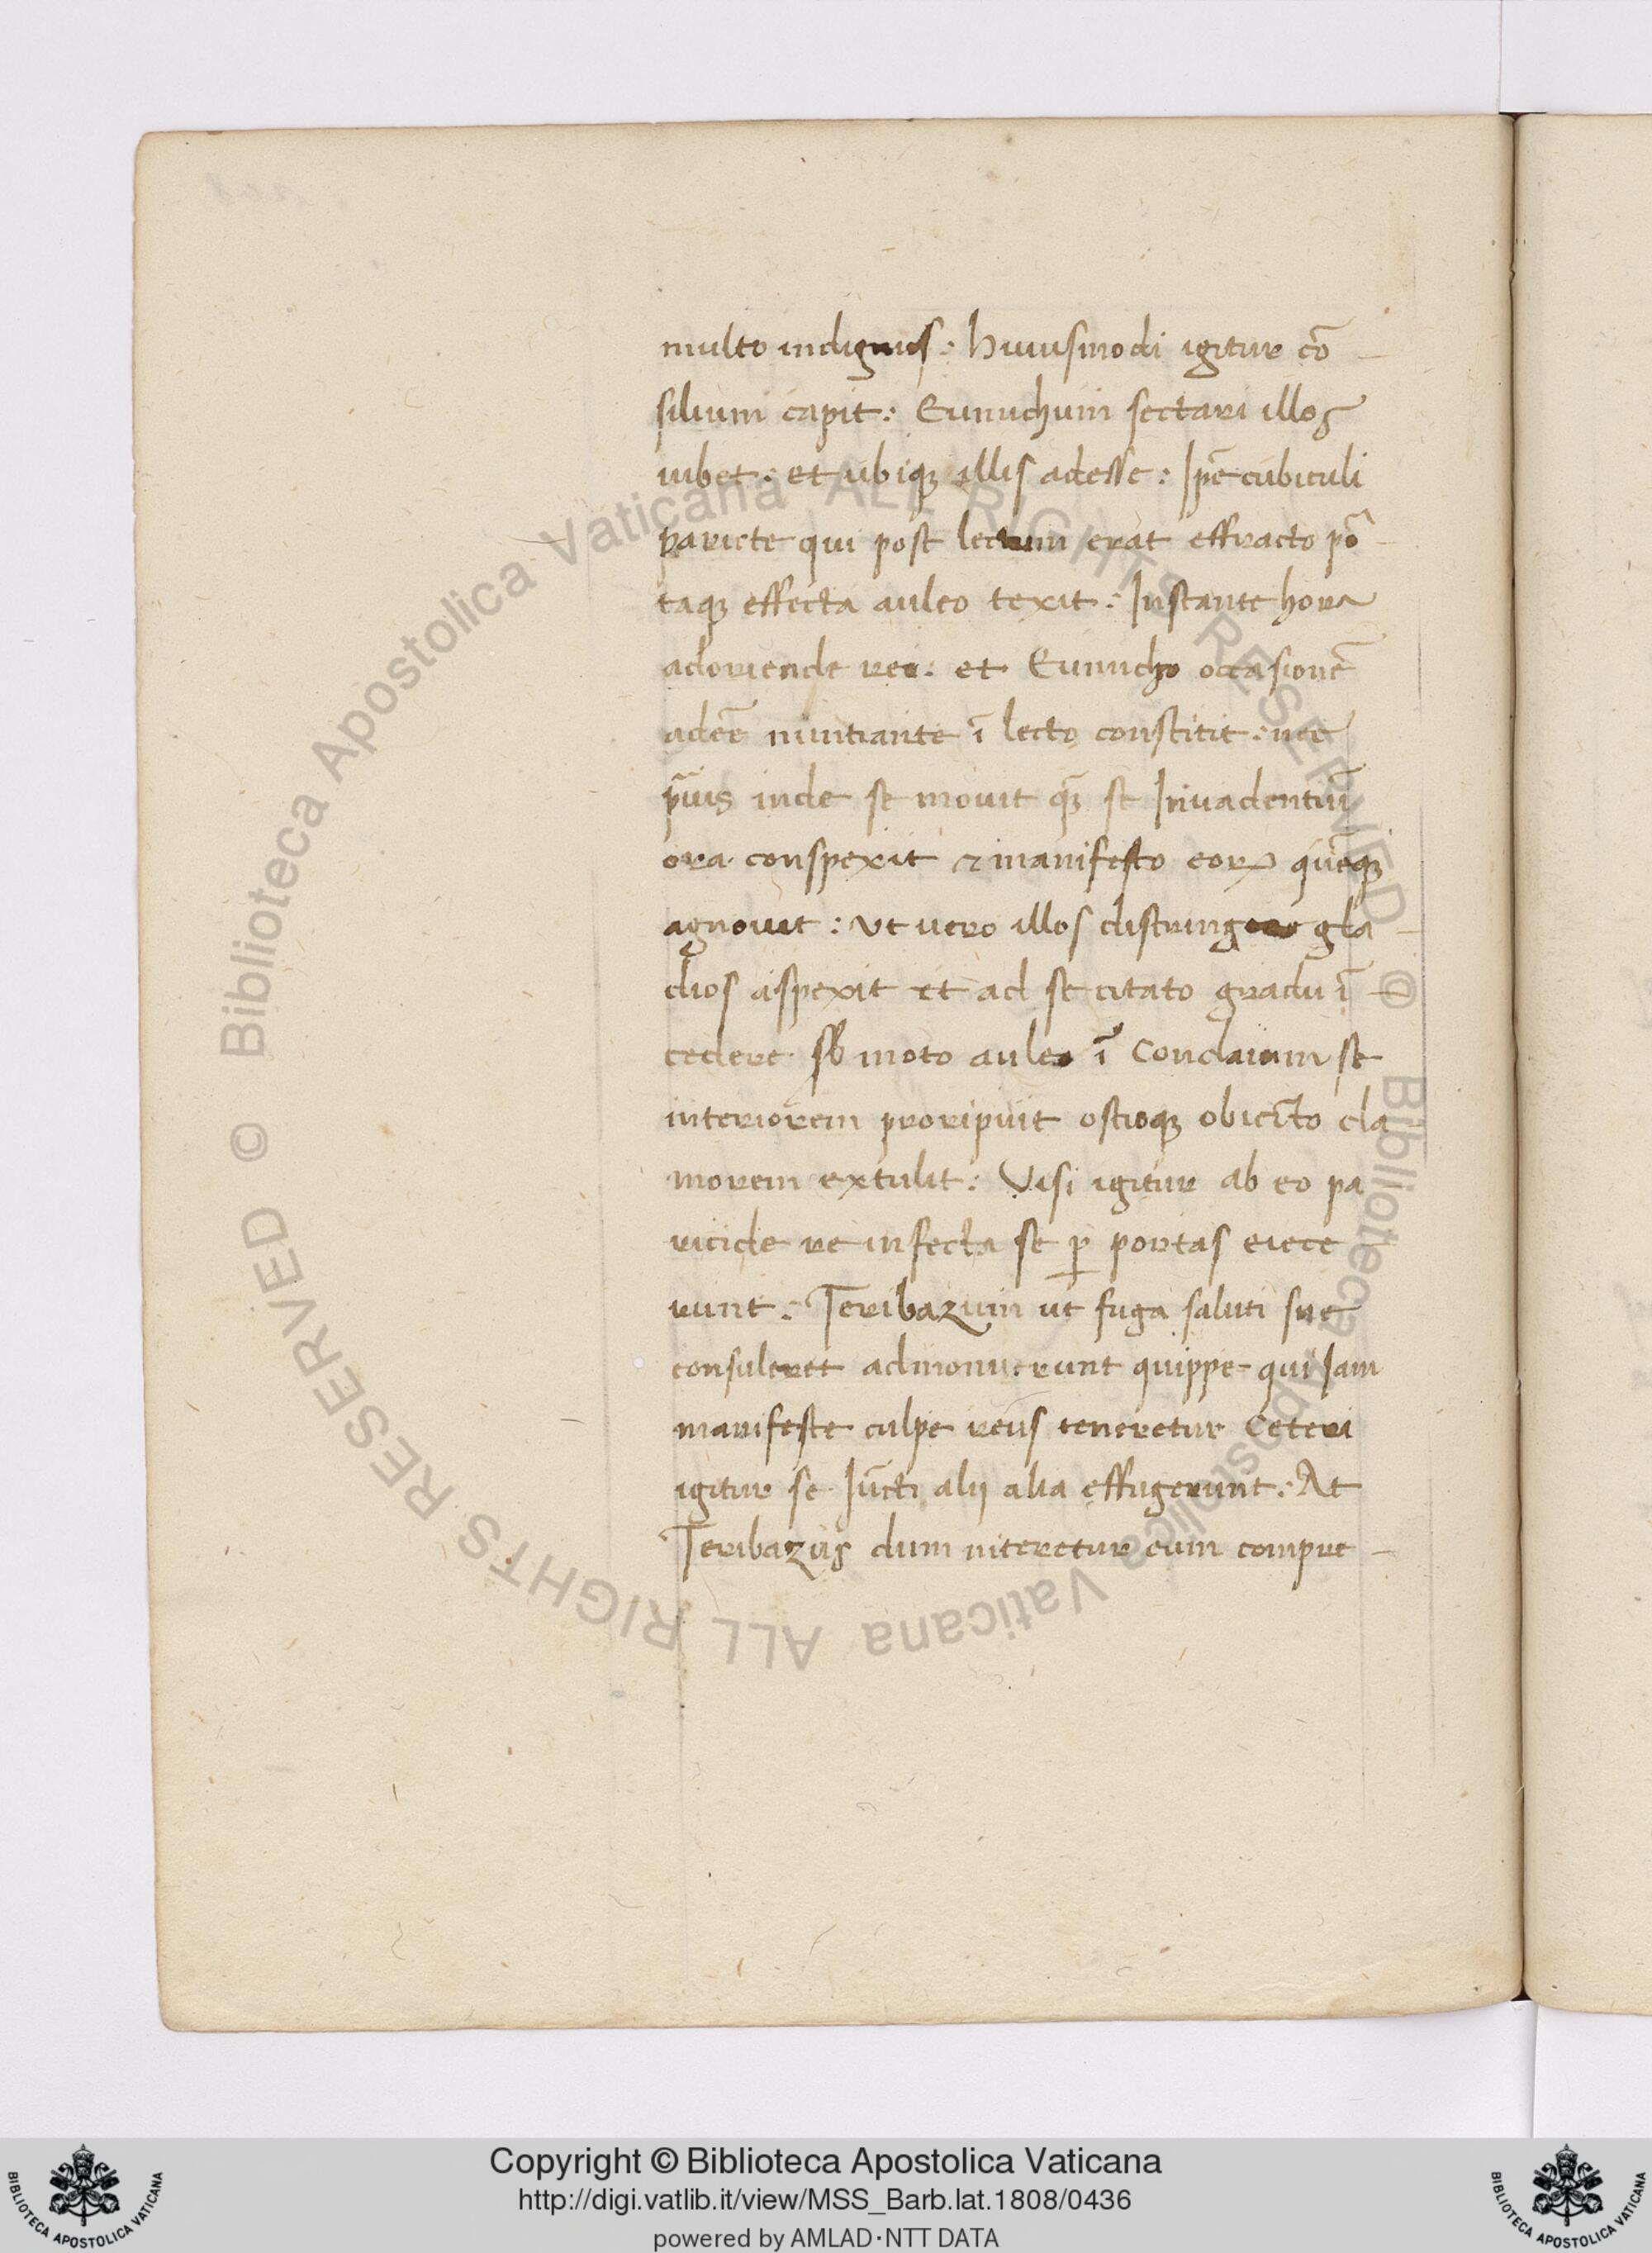 multo indignus: huiusmodi igitur cō
silium capit: Eunuchum sectari illos
iubet: et ubiqꝫ illis adesse: Ip̄e cubiculi
pariete qui post lectum erat effracto pō
taqꝫ effecta auleo texit: Instante hora
adoriende rei: et Eunucho occasionē
adeē nuntiante ī lecto constitit: nec
p̄ius inde se mouit qꝫ̄ se Inuadentiū
ora conspexit ⁊ manifesto eoꝝ quēqꝫ
agnouit: Vt uero illos distringere gla
dios aspexit et ad se citato gradu ī
cedere sb̄ moto auleo ī Conclauim se
interiorem proripuit ostioqꝫ obiecto cla
morem extulit: Visi igitur ab eo pa
ricide re infecta se ꝑ portas eiece
runt: Teribazum ut fuga saluti sue
consuleret admonuerunt quippe qui Iam
manifeste culpe reus teneretur Ceteri
igitur se Iūcti alij alia effugerunt: At
Teribazus dum niteretur eum compre
Copyright © Biblioteca Apostolica Vaticana
http://digi.vatlib.it/view/MSS_Barb.lat.1808/0436
powered by AMLAD·NTT DATA
BIBLIOTECA APOSTOLICA VATICANA
BIBLIOTECA APOSTOLICA VATICANA
© Biblioteca Apostolica Vaticana ALL RIGHTS RESERVED © Biblioteca Apostolica Vaticana ALL RIGHTS RESERVED